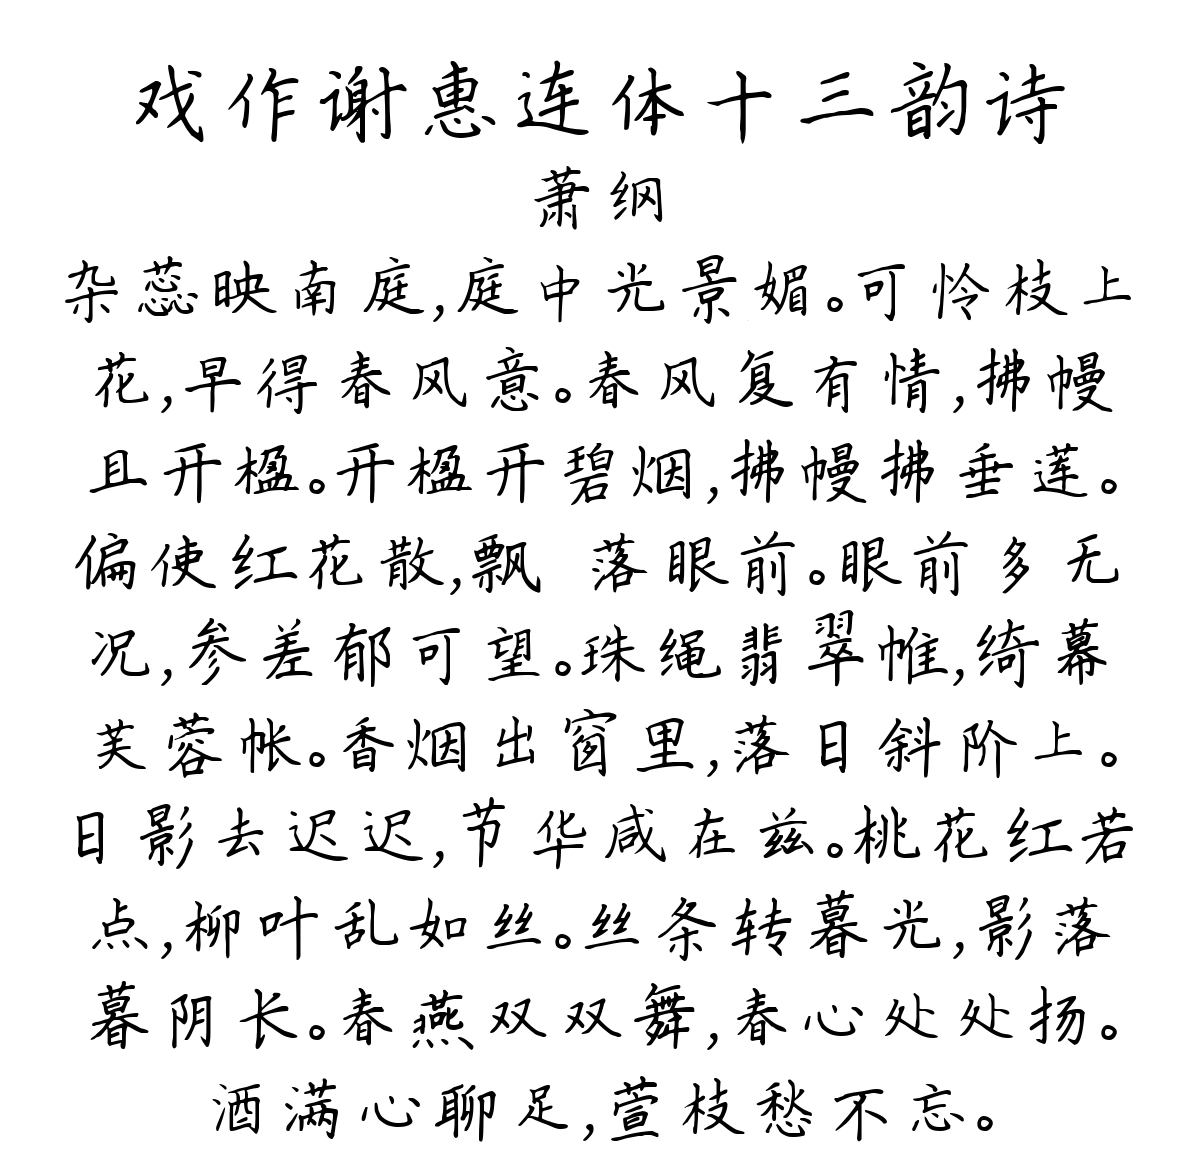 戏作谢惠连体十三韵诗
萧纲
杂蕊映南庭,庭中光景媚。可怜枝上
花,早得春风意。春风复有情,拂幔
且开楹。开楹开碧烟,拂幔拂垂莲。
偏使红花散,飘 落眼前。眼前多无
况,参差郁可望。珠绳翡翠帷,绮幕
芙蓉帐。香烟出窗里,落日斜阶上。
日影去迟迟,节华咸在兹。桃花红若
点,柳叶乱如丝。丝条转暮光,影落
暮阴长。春燕双双舞,春心处处扬。
酒满心聊足,萱枝愁不忘。